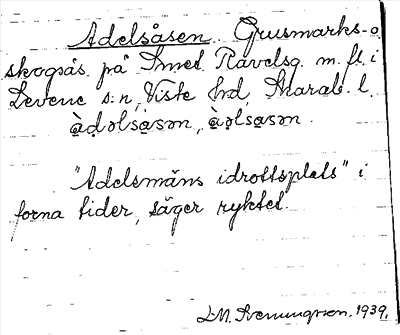 Adelsåsen. Grusmarks- o.
skogsås på Smed. Ravelsg. m. fl. i
Levene s:n, Viste hd, Skarab. l.
à̤dəlsåsən, à̤əlsåsən.
"Adelsmäns idrottsplats" i
forna tider, säger ryktet.
L.M. Svenungsson. 1939.